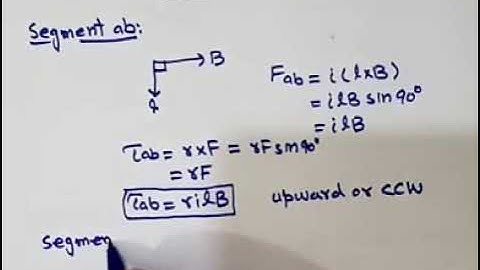 Segment ab:
B
l
Fab = i(l×B)
= ilB sin90°
= ilB
τab = r×F = rFsin90°
= rF
τab = rilB upward or CCW
Segmen